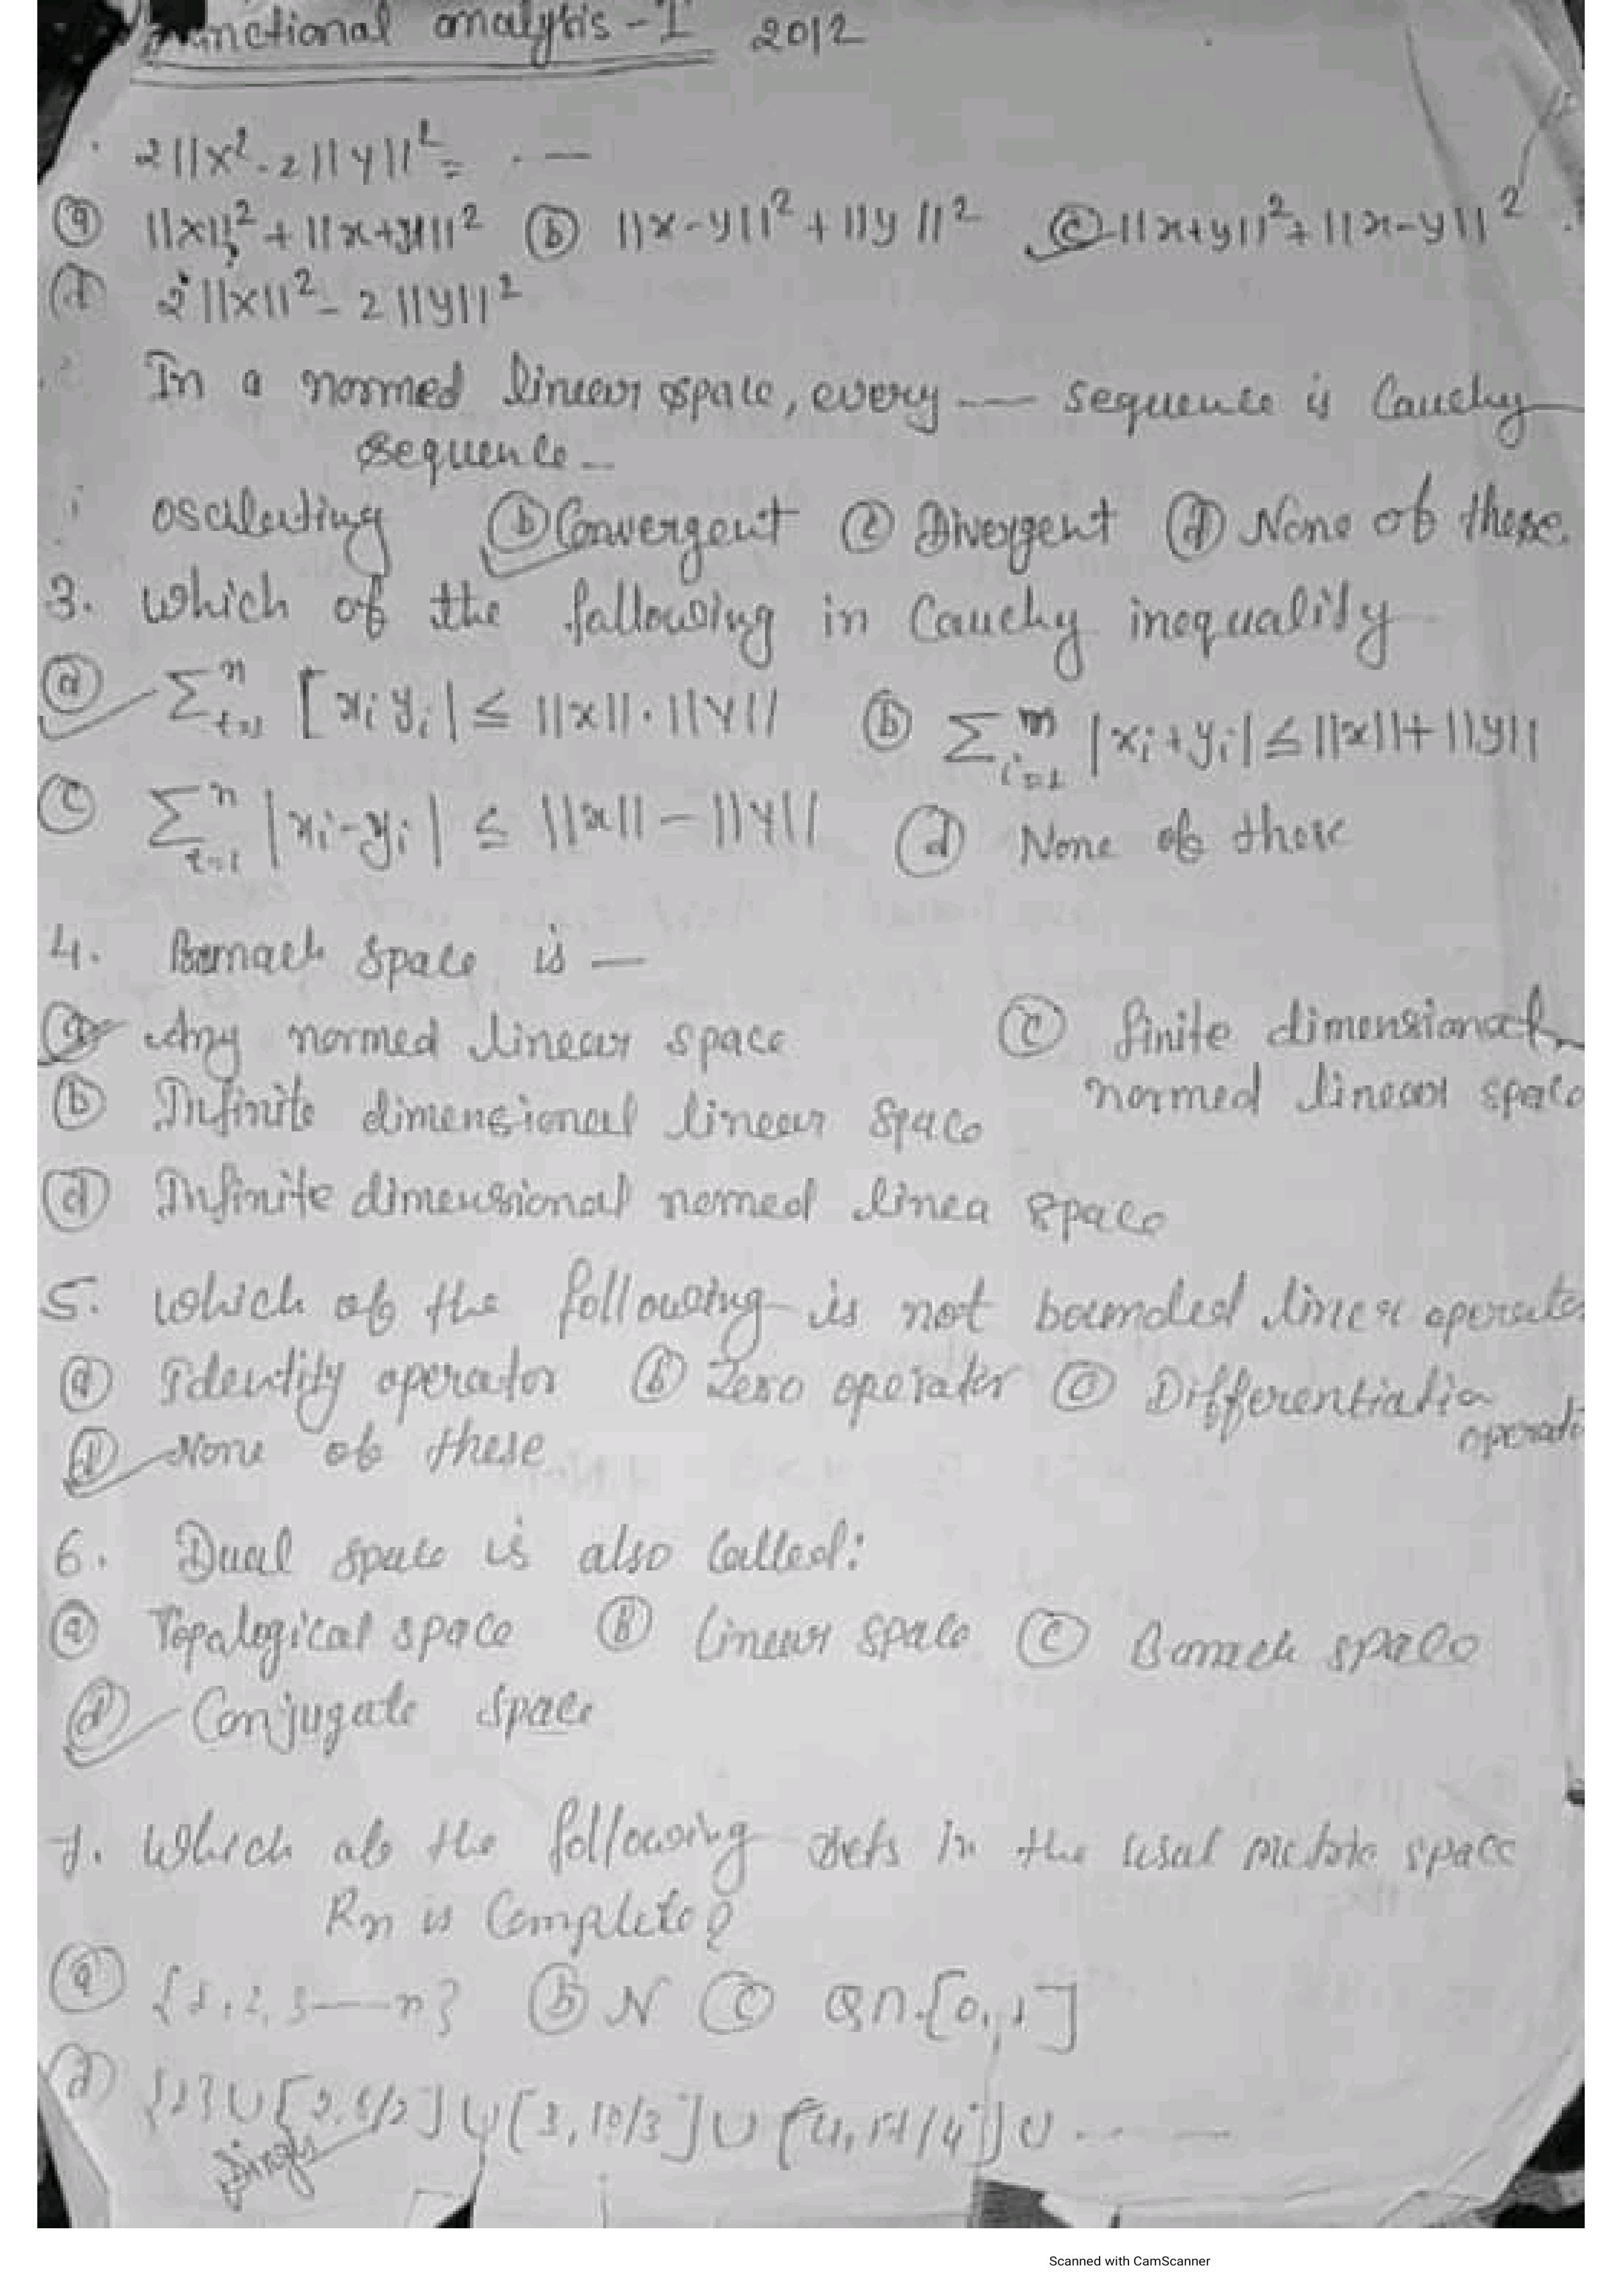 Functional analysis - I 2012
2||x² - 2||y||² = . —
(a) ||x||² + ||x+y||² (b) ||x-y||² + ||y||² (c) ||x+y||² + ||x-y||²
(d) 2||x||² - 2||y||²
In a normed linear space, every — sequence is Cauchy
sequence -
oscilating (b) Convergent (c) Divergent (d) None of these.
3. which of the fallowing in Cauchy inequality
(a) Σⁿᵢ₌₁ [xᵢyᵢ| ≤ ||x||.||y|| (b) Σᵐᵢ₌₁ |xᵢ+yᵢ| ≤ ||x||+||y||
(c) Σⁿᵢ₌₁ |xᵢ-yᵢ| ≤ ||x|| - ||y|| (d) None of these
4. Banach space is —
(a) Any normed linear space (c) finite dimensional
normed linear space
(b) Infinite dimensional linear space
(d) Infinite dimensional nomed linea space
5. which of the following is not bounded linear operator
(a) Identity operator (b) Zero operator (c) Differentiation
operator
(d) None of these
6. Dual space is also Called:
(a) Topalogical space (B) linear space (c) Banach space
(d) Conjugate space
7. Which of the following sets in the usual metric space
Rn is Complete?
(a) {1,2,3——n} (b) N (c) Q∩[0,1]
(d) {1}∪[2,5/2]∪[3,10/3]∪[4,17/4]∪ ----